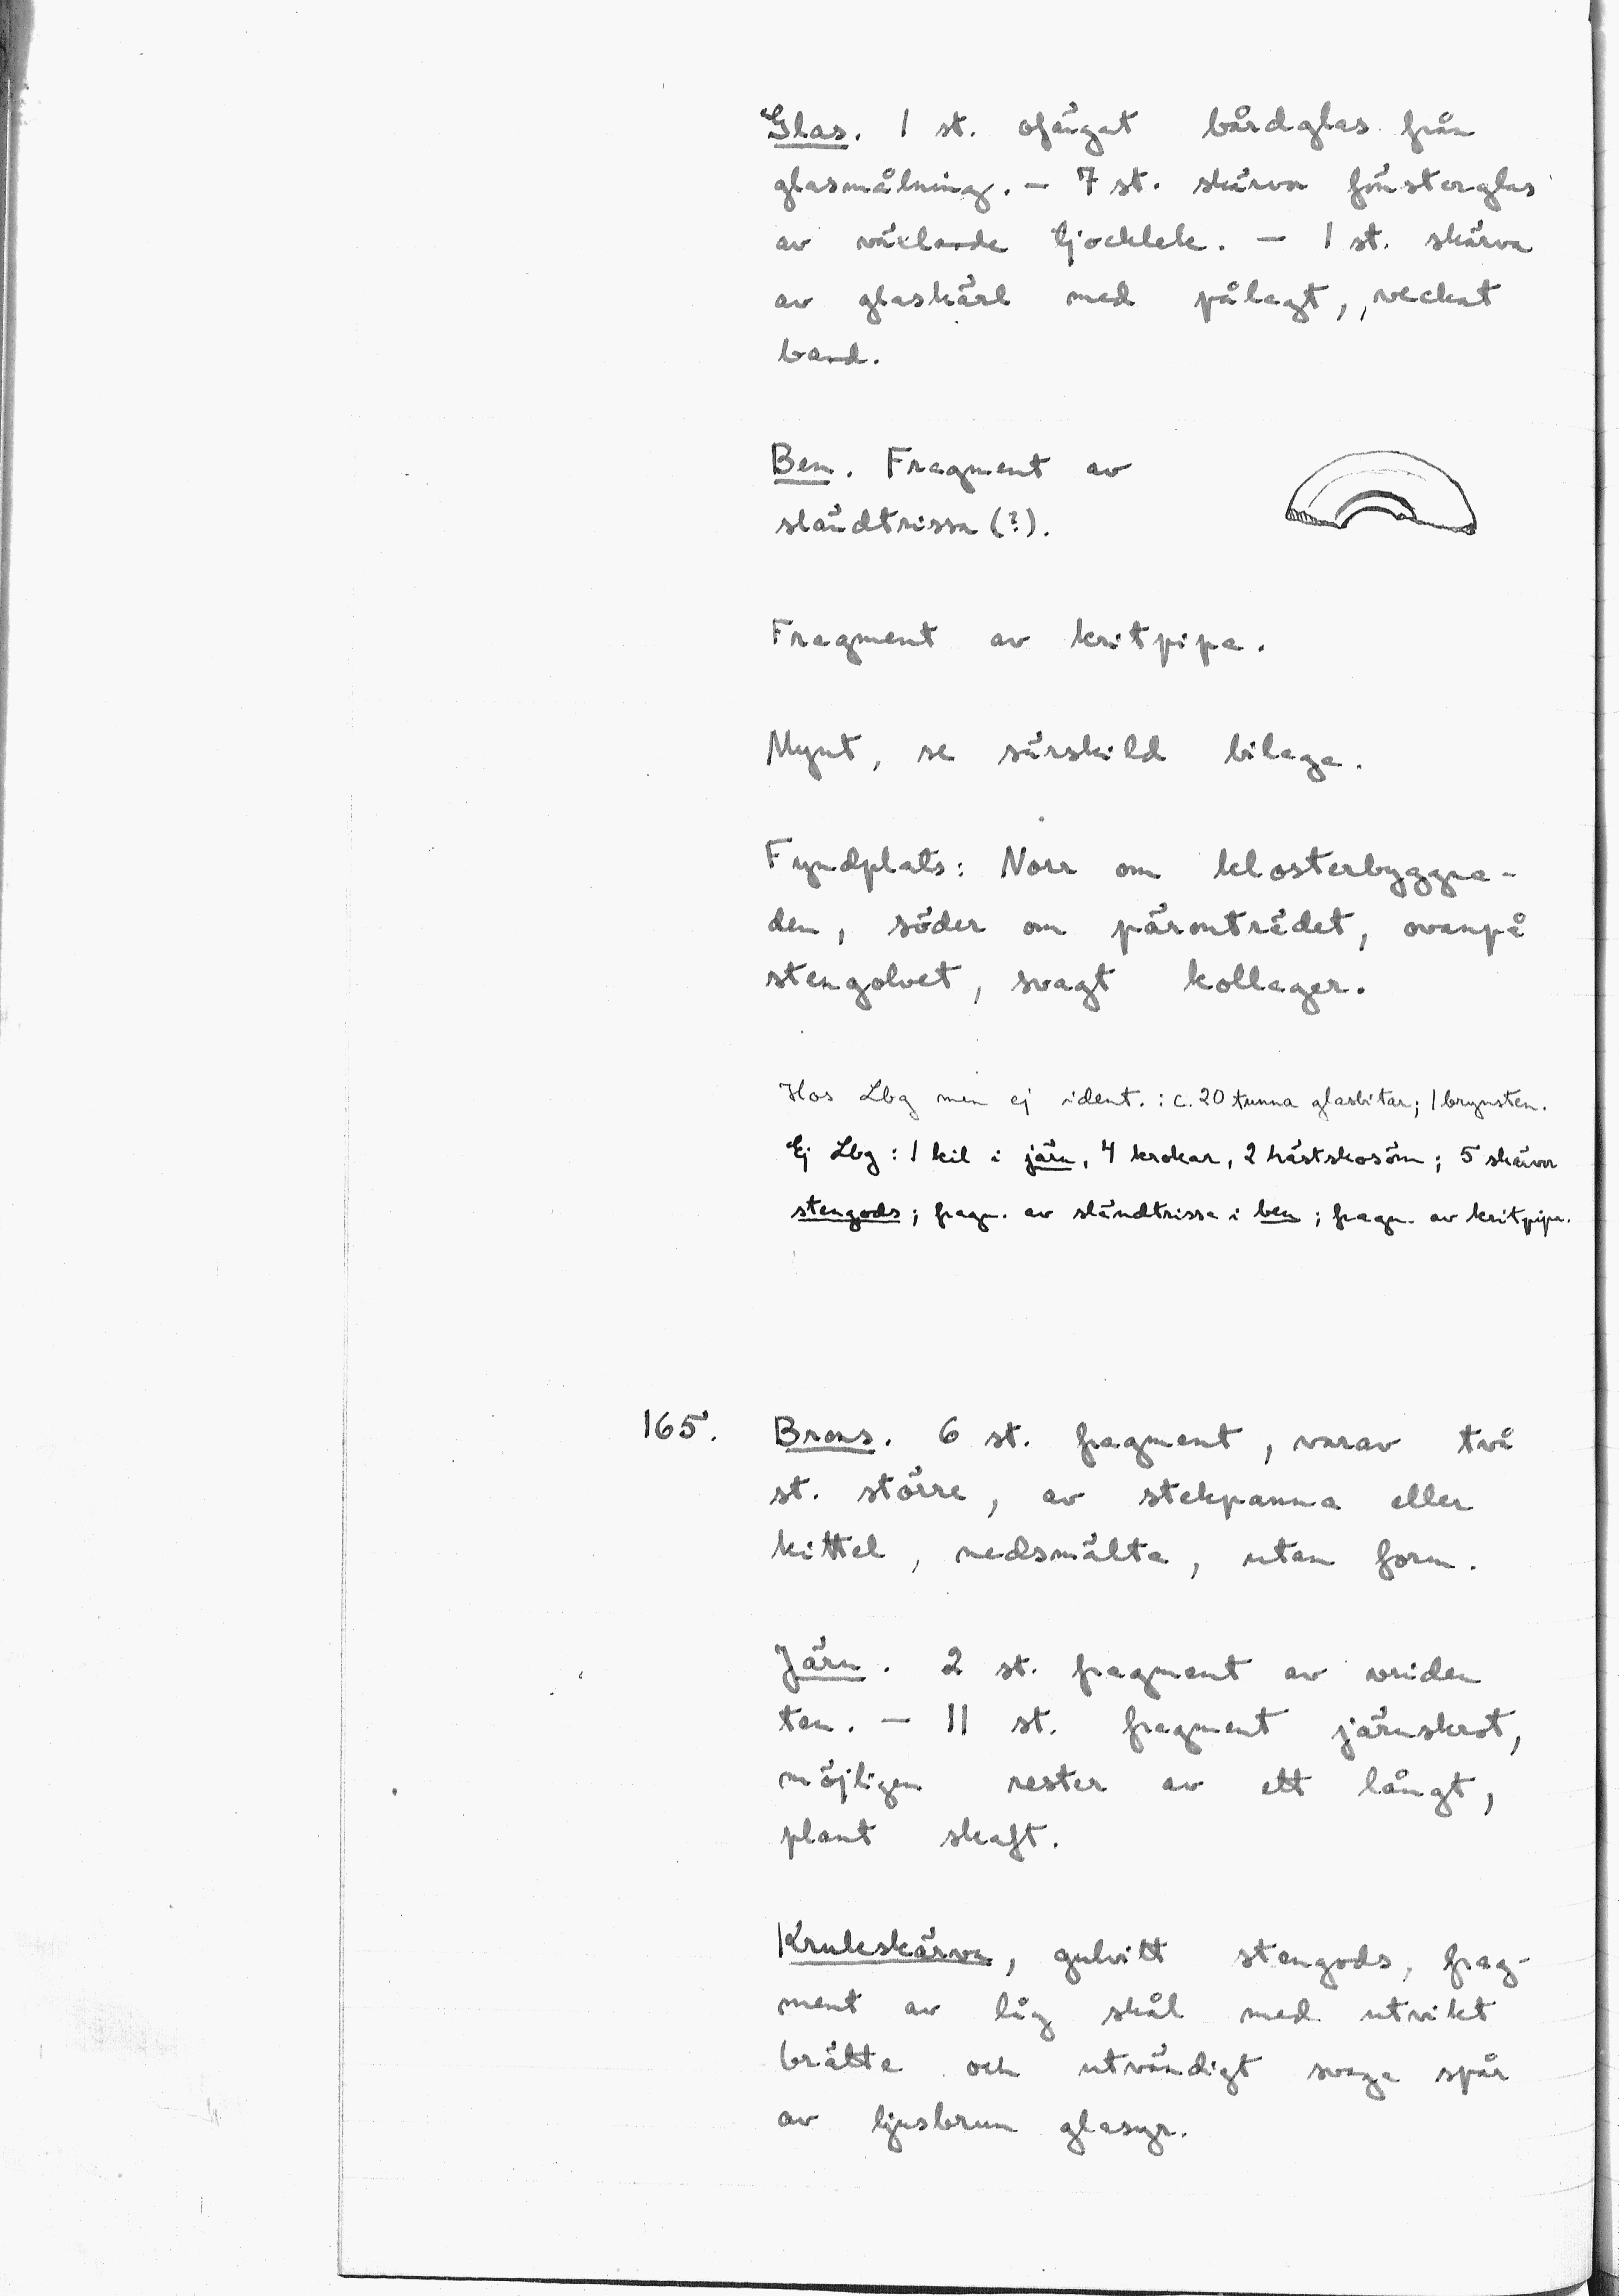 Glas. 1 st. ofärgat bårdglas från
glasmålning. – 7 st. skärvor fönsterglas
av växlande tjocklek. – 1 st. skärva
av glaskärl med pålagt, veckat
band.
Ben. Fragment av
sländtrissa (?).
Fragment av kritpipa.
Mynt, se särskild bilaga.
Fyndplats: Norr om klosterbyggna-
den, söder om päronträdet, ovanpå
stengolvet, svagt kollager.
Hos Lbg men ej ident.: c. 20 tunna glasbitar; 1 brynsten.
Ej Lbg: 1 kil i järn, 4 krokar, 2 hästskosöm; 5 skärvor
stengods; fragm. av sländtrissa i ben; fragm. av kritpipa.
165. Brons. 6 st. fragment, varav två
st. större, av stekpanna eller
kittel, nedsmälta, utan form.
Järn. 2 st. fragment av vriden
ten. – 11 st. fragment järnskrot,
möjligen rester av ett långt,
plant skaft.
Krukskärva, gulvitt stengods, frag-
ment av låg skål med utvikt
brätte och utvändigt svaga spår
av ljusbrun glasyr.